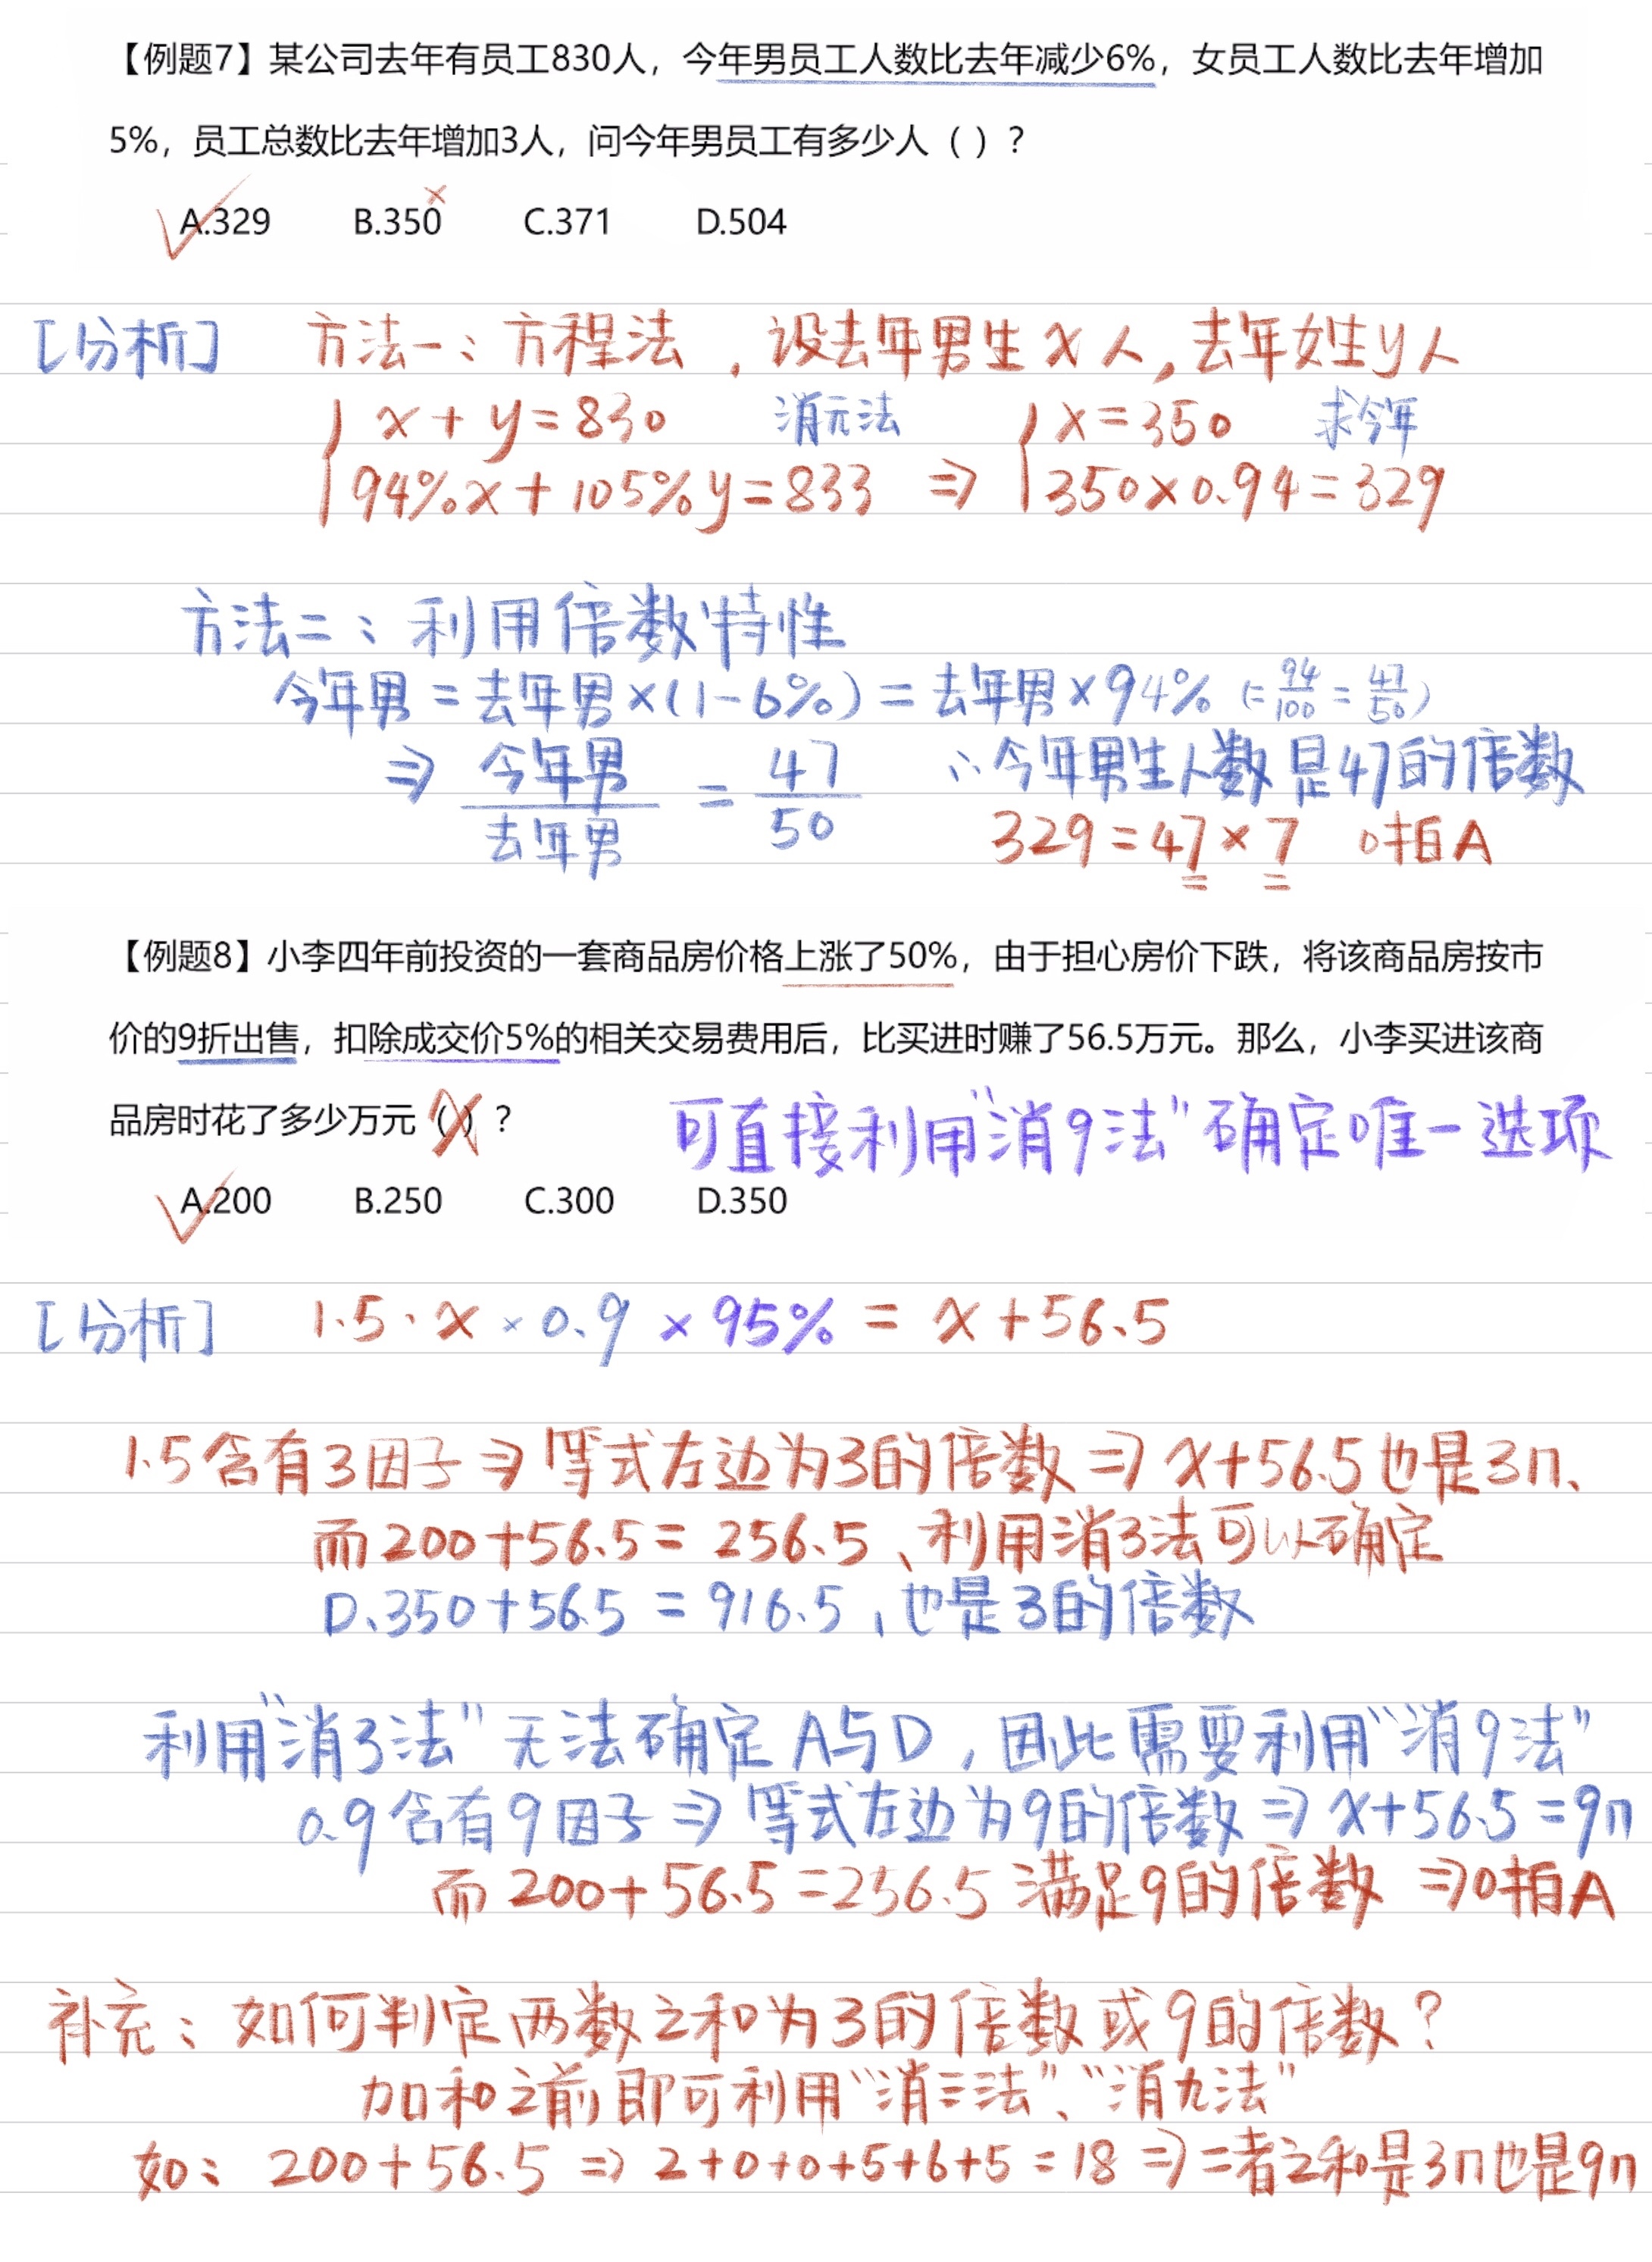 【例题7】某公司去年有员工830人，今年男员工人数比去年减少6%，女员工人数比去年增加
5%，员工总数比去年增加3人，问今年男员工有多少人（ ）？
A.329 B.350 C.371 D.504
[分析] 方法一：方程法，设去年男生x人，去年女性y人
x+y=830 消元法 x=350 求今年
94%x+105%y=833 ⇒ 350×0.94=329
方法二：利用倍数特性
今年男=去年男×(1-6%)=去年男×94% (=94/100=47/50)
⇒ 今年男/去年男 = 47/50 ∴今年男生人数是47的倍数
329=47×7 啪A
【例题8】小李四年前投资的一套商品房价格上涨了50%，由于担心房价下跌，将该商品房按市
价的9折出售，扣除成交价5%的相关交易费用后，比买进时赚了56.5万元。那么，小李买进该商
品房时花了多少万元（ ）？ X 可直接利用“消9法”确定唯一选项
A.200 B.250 C.300 D.350
[分析] 1.5·x×0.9×95%=x+56.5
1.5含有3因子⇒等式左边为3的倍数⇒x+56.5也是3n、
而200+56.5=256.5、利用消3法可以确定
D.350+56.5=916.5，也是3的倍数
利用“消3法”无法确定A与D，因此需要利用“消9法”
0.9含有9因子⇒等式左边为9的倍数⇒x+56.5=9n
而200+56.5=256.5满足9的倍数⇒啪A
补充：如何判定两数之和为3的倍数或9的倍数？
加和之前即可利用“消三法”、“消九法”
如：200+56.5⇒2+0+0+5+6+5=18⇒二者之和是3n也是9n